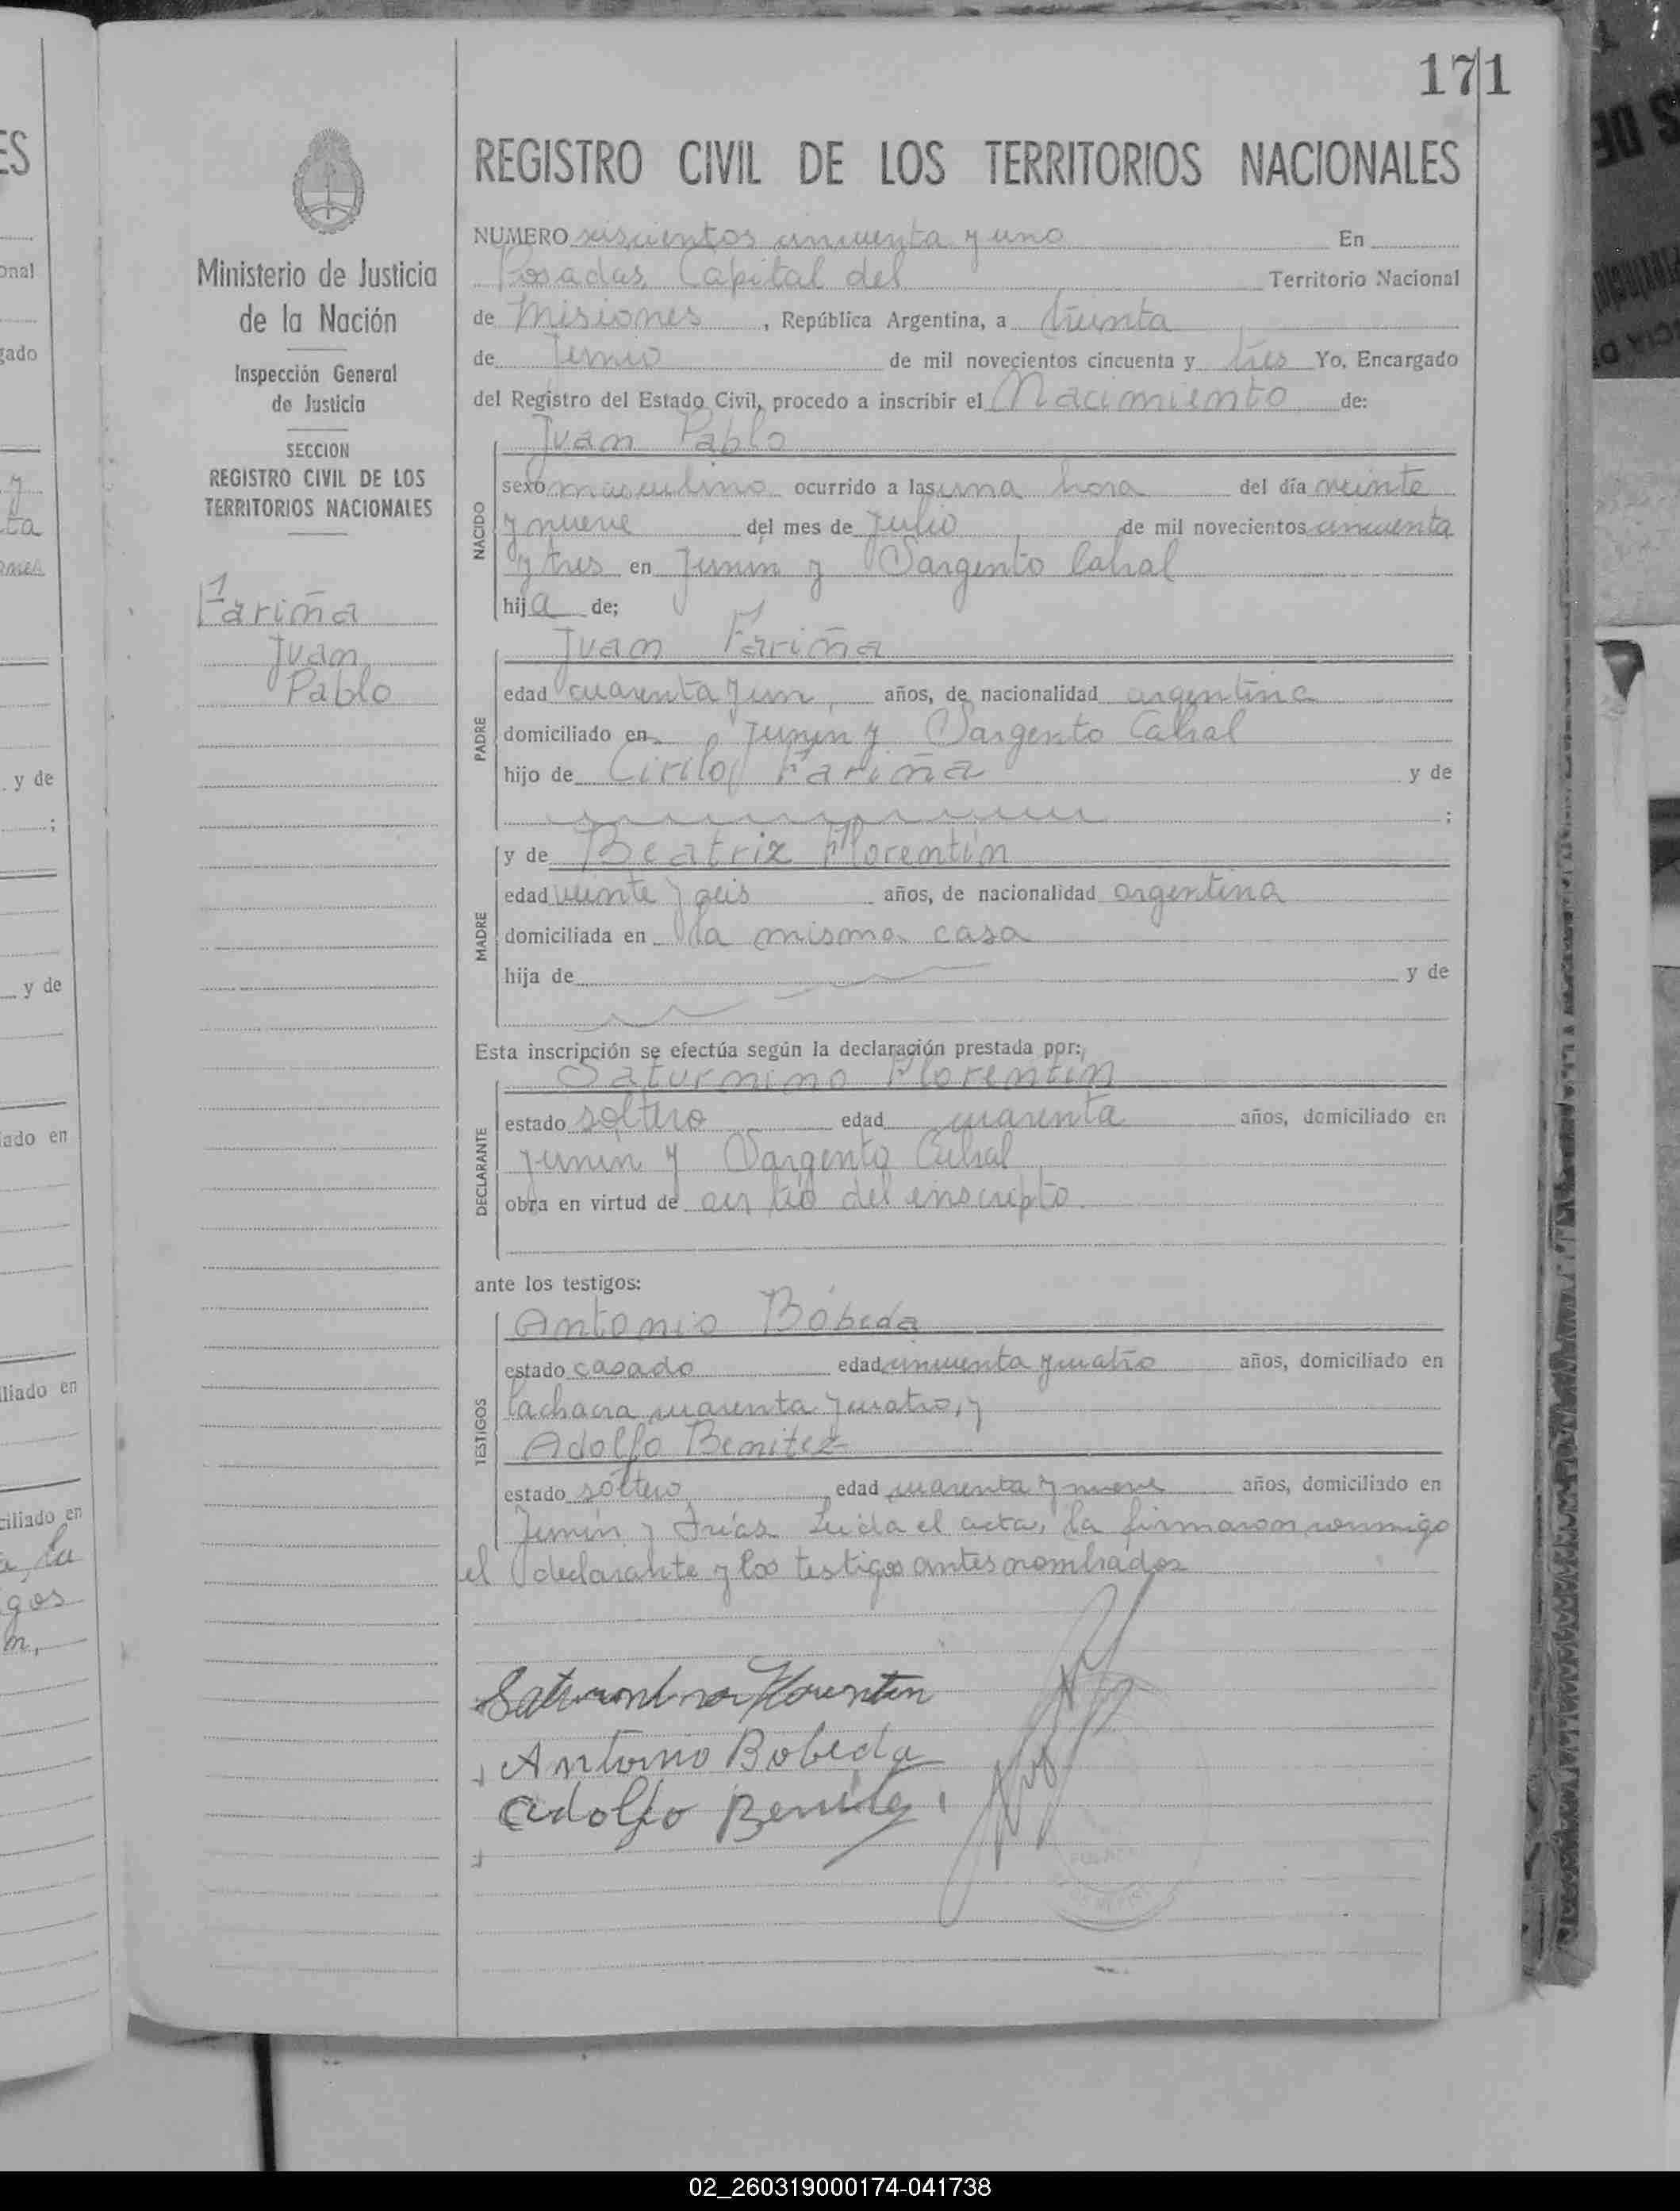 171
REGISTRO CIVIL DE LOS TERRITORIOS NACIONALES
Ministerio de Justicia
de la Nación
Inspección General
de Justicia
SECCION
REGISTRO CIVIL DE LOS
TERRITORIOS NACIONALES
Fariña
Juan
Pablo
NUMERO seiscientos cincuenta y uno En
Posadas, Capital del Territorio Nacional
de Misiones, República Argentina, a treinta
de Junio de mil novecientos cincuenta y tres Yo, Encargado
del Registro del Estado Civil, procedo a inscribir el Nacimiento de:
Juan Pablo
NACIDO
sexo masculino ocurrido a las una hora del día veinte
y nueve del mes de Julio de mil novecientos cincuenta
y tres en Junin y Sargento Cabral
hija de;
Juan Fariña
PADRE
edad cuarenta y un, años, de nacionalidad argentina
domiciliado en Junin y Sargento Cabral
hijo de Cirilo Fariña y de
;
MADRE
y de Beatriz Florentín
edad veinte y seis años, de nacionalidad argentina
domiciliada en la misma casa
hija de y de
Esta inscripción se efectúa según la declaración prestada por:
Saturnino Florentín
DECLARANTE
estado soltero edad cuarenta años, domiciliado en
Junin y Sargento Cabral
obra en virtud de ser tio del inscripto.
ante los testigos:
Antonio Bóbeda
TESTIGOS
estado casado edad cincuenta y cuatro años, domiciliado en
la chacra cuarenta y cuatro, y
Adolfo Benitez
estado soltero edad cuarenta y nueve años, domiciliado en
Junin y Frías. Leida el acta, la firmaron conmigo
el declarante y los testigos antes nombrados
Florentin
Antonio Bobeda
Adolfo Benitez
02_260319000174-041738